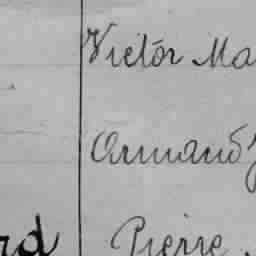 Victor Ma
Armand
rd Pierre